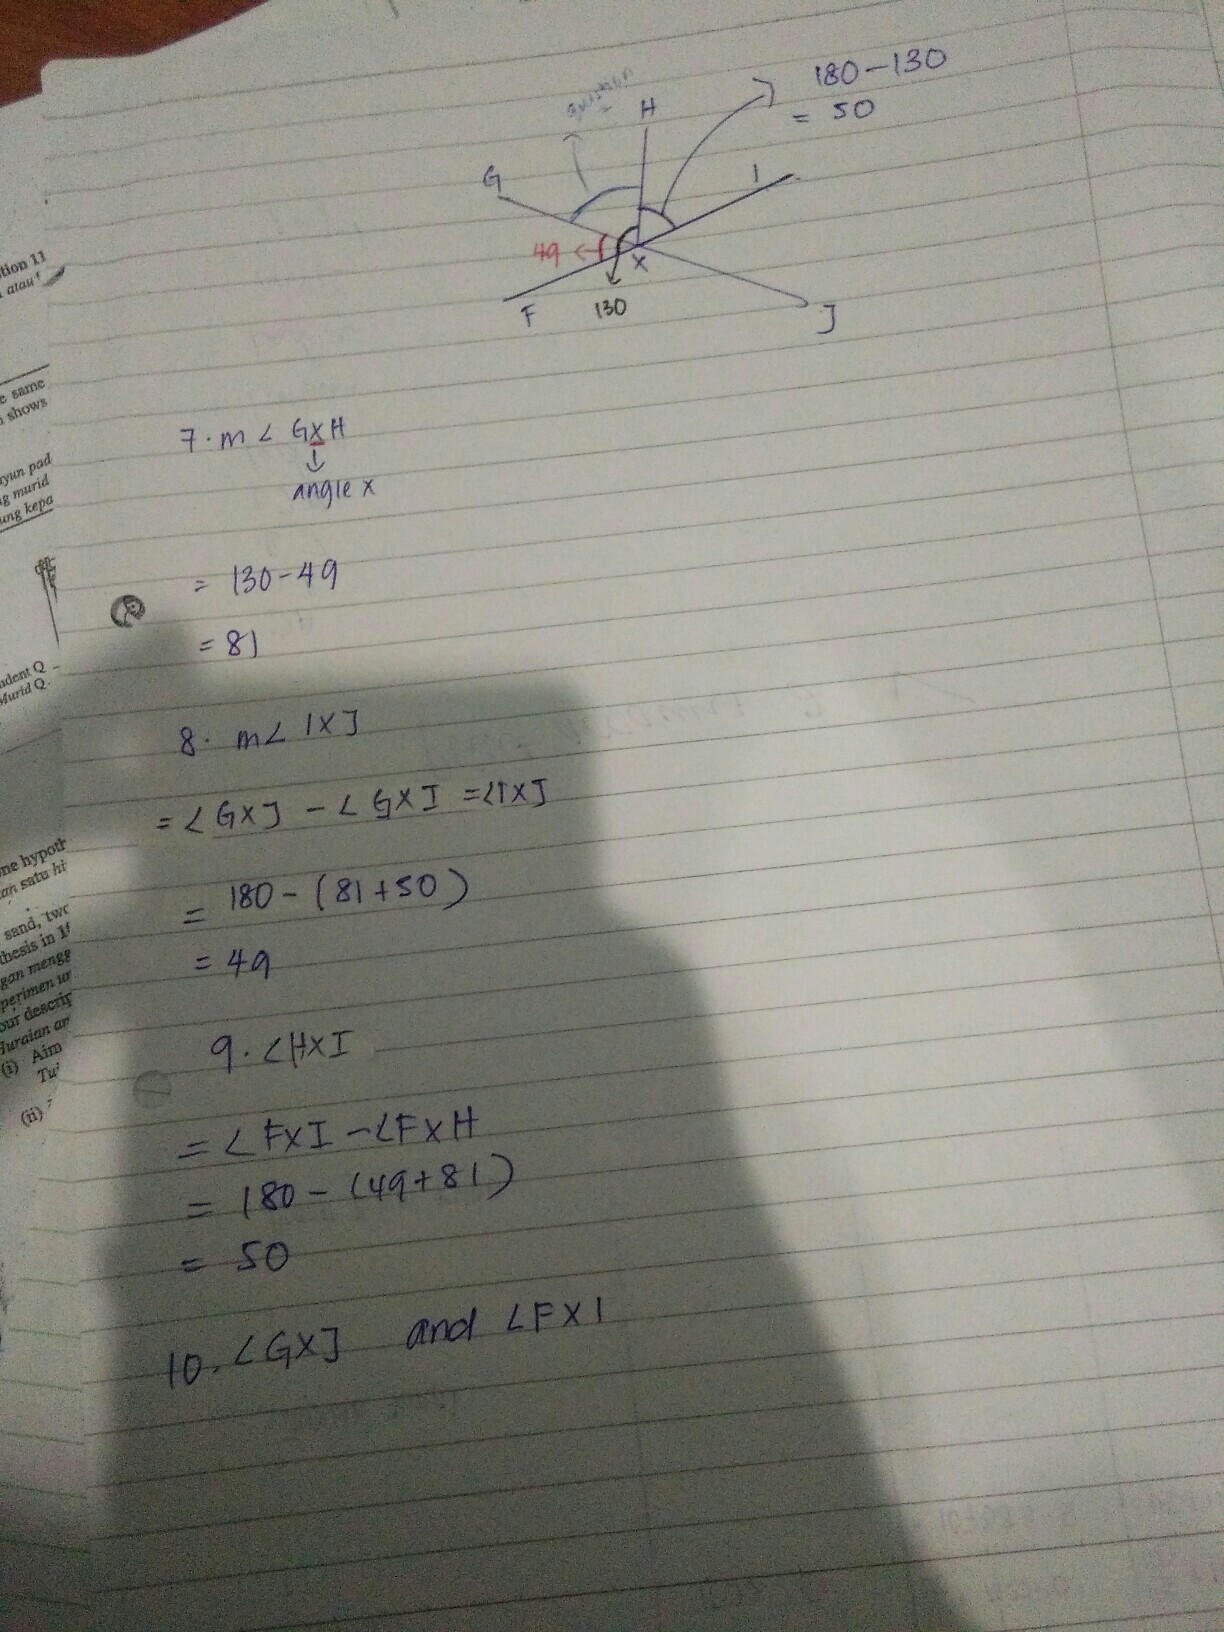 tion 11
atau
e same
shows
ayun pad
g murid
ung kepa
udent Q
Murid Q
ne hypoth
an satu hi
sand, two
thesis in 11
gan mengg
perimen
our descrip
Huraian an
(i) Aim
Tu
(ii)
180-130
= 50
H
G
I
49
X
F
130
J
7. m∠ GXH
angle x
= 130-49
= 81
8. m∠ IXJ
= ∠GXJ - ∠GXI = ∠IXJ
= 180 - (81+50)
= 49
9. ∠HXI
= ∠FXI - ∠FXH
= 180 - (49+81)
= 50
10. ∠GXJ and ∠FXI